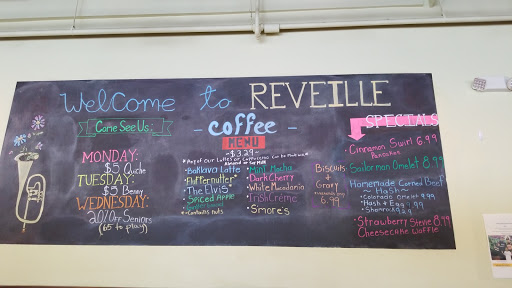 Welcome to REVEILLE
Come See Us:
MONDAY:
$5 Quiche
TUESDAY:
$5 Benny
WEDNESDAY:
20% OFF Seniors
(65 to play)
- Coffee -
MENU
- $3.29 -
*Any of Our Lattes or Cappuccino Can be Made with
Almond or Soy Milk
• Baklava Latte
• Fluffernutter*
• The Elvis*
• Spiced Apple
* Contains nuts
• Mint Mocha
• Dark Cherry
• White Macadamia
• Irish Crème
• S'mores
Biscuits
+
Gravy
6.99
SPECIALS
• Cinnamon Swirl 6.99
Pancakes
• Sailorman Omelet 8.99
Homemade Corned Beef
~ Hash ~
• Colorado Omelet 9.99
• Hash + Egg 9.99
• Shamrock 9.99
• Strawberry Stevie 8.99
Cheesecake Waffle